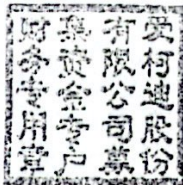 爱柯迪股份
有限公司募
集资金专户
财务专用章